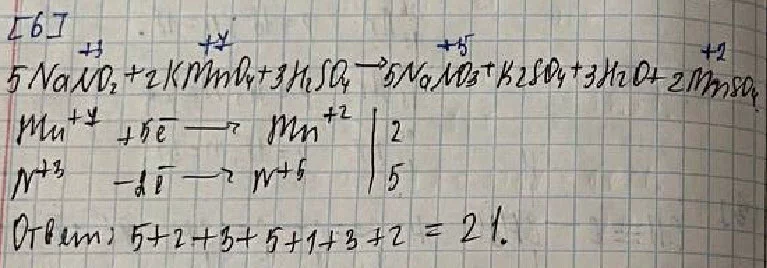 [6]
+3 +7 +5 +2
5NaNO₂ + 2KMnO₄ + 3H₂SO₄ → 5NaNO₃ + K₂SO₄ + 3H₂O + 2MnSO₄
Mn⁺⁷ +5ē → Mn⁺² | 2
N⁺³ -2ē → N⁺⁵ | 5
Ответ: 5+2+3+5+1+3+2 = 21.